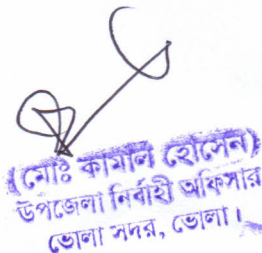 (মোঃ কামাল হোসেন)
উপজেলা নির্বাহী অফিসার
ভোলা সদর, ভোলা।